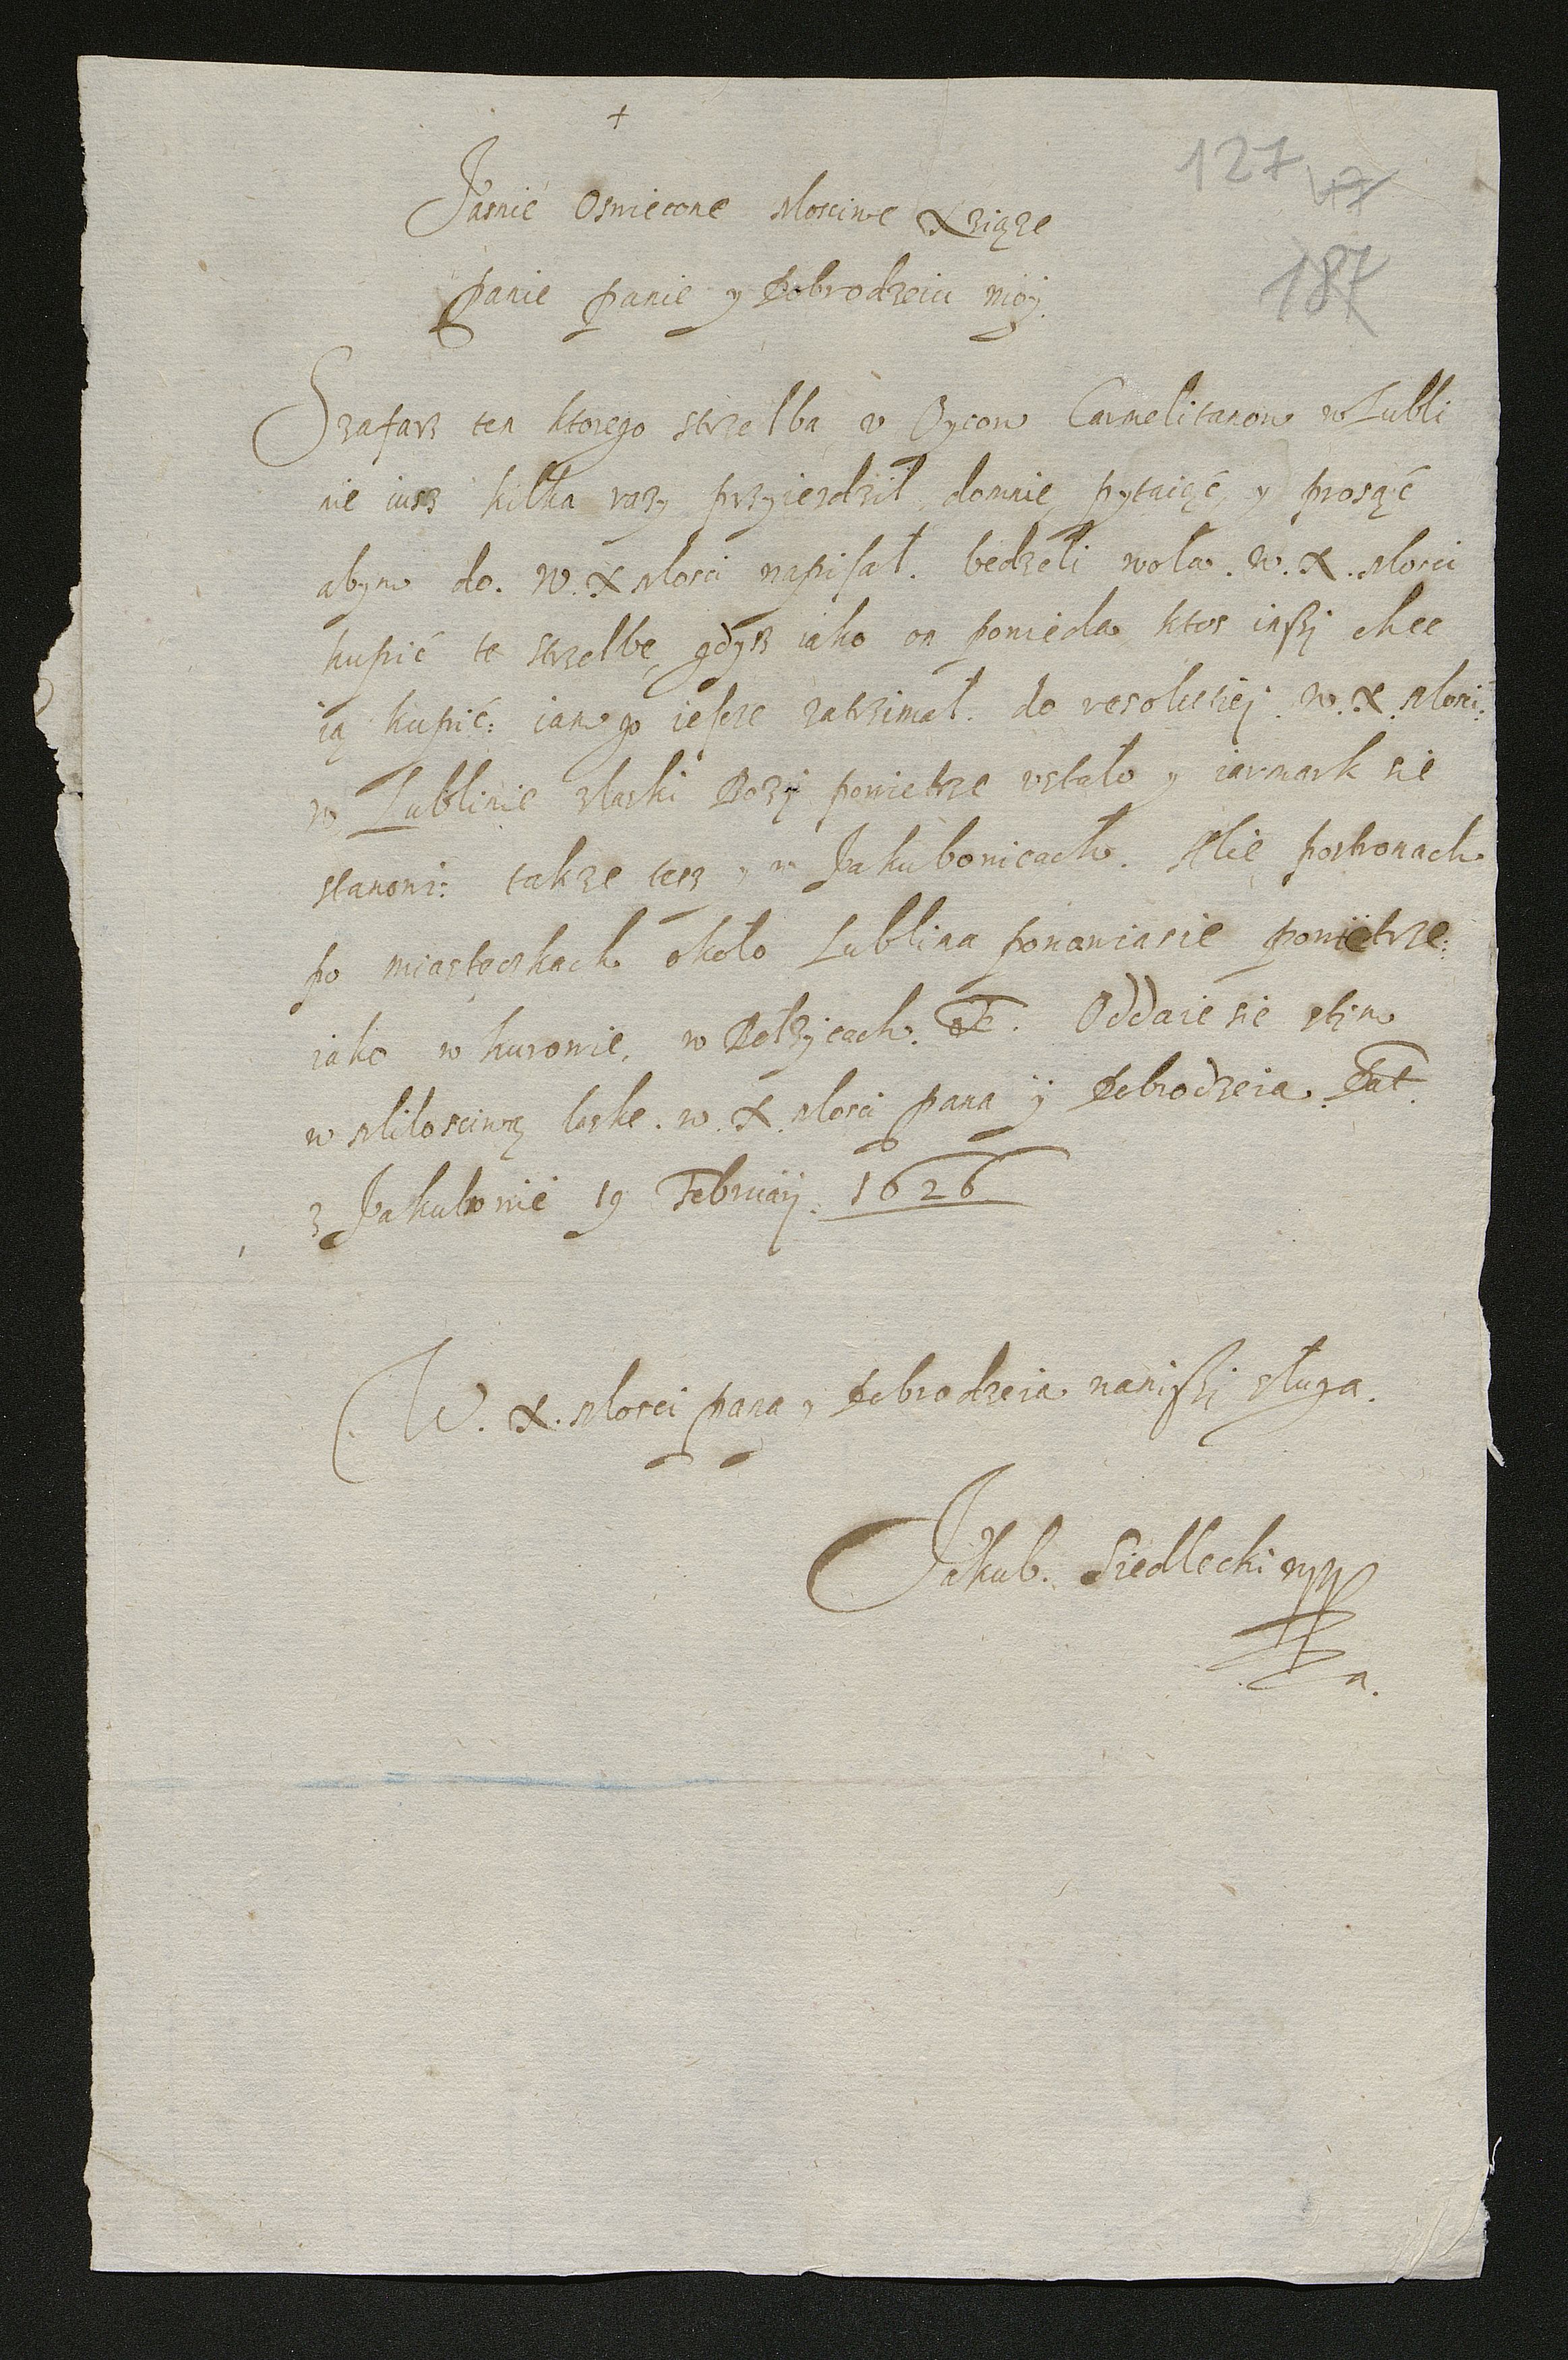 +
127 47
187
Jasnie Oswiecone Mosciwe Xziąze
Panie Panie y Dobrodzeiu moj.
Szafarz ten ktorego strzelba v Oycow Carmelitanow w Lubli
nie iusz kilka razy przyiezdzil domnie pytaiąć y prosząć
abym do. W. X Mosci napisał. bedzeli wola. W. X. Mosci
kupić te strzelbe, gdysz iako on powieda ktos inszj chce
ią kupić: iam go iescze zatrzimał. do resolutiej. W. X. Mosci:
w Lublinie złaski Bozy powietrze vstało y iarmark sie
stanowi: takze tesz y w Jakubowicach. Ale postronach
po miasteczkach około Lublina ponawiasie powietrze:
iako w kurowie, w Bełzycach. etc. Oddaie sie stjm
w Milosciwą laske. w. X. Mosci pana ÿ Dobrodzeia. Dat.
z Jakubowic 19 Februarij. 1626
W. X. Mosci pana y Dobrodzeia naniszj sługa.
Jakub. Siedlecki mpp
a.